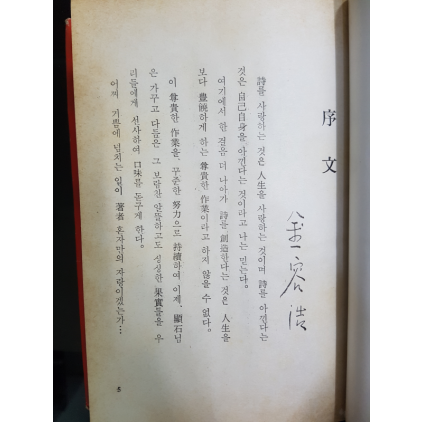 序文
金容浩
詩를 사랑하는 것은 人生을 사랑하는 것이며 詩를 아낀다는
것은 自己自身을 아낀다는 것이라고 나는 믿는다.
여기에서 한 걸음 더 나아가 詩를 創造한다는 것은 人生을
보다 豊饒하게 하는 尊貴한 作業이라고 하지 않을 수 없다.
이 尊貴한 作業을, 꾸준한 努力으로 持續하여 이제, 顯石님
은 가꾸고 다듬은 그 보람찬 알뜰하고도 싱싱한 果實들을 우
리들에게 선사하여 口味를 돋구게 한다.
어찌 기쁨에 넘치는 일이 著者 혼자만의 자랑이겠는가…